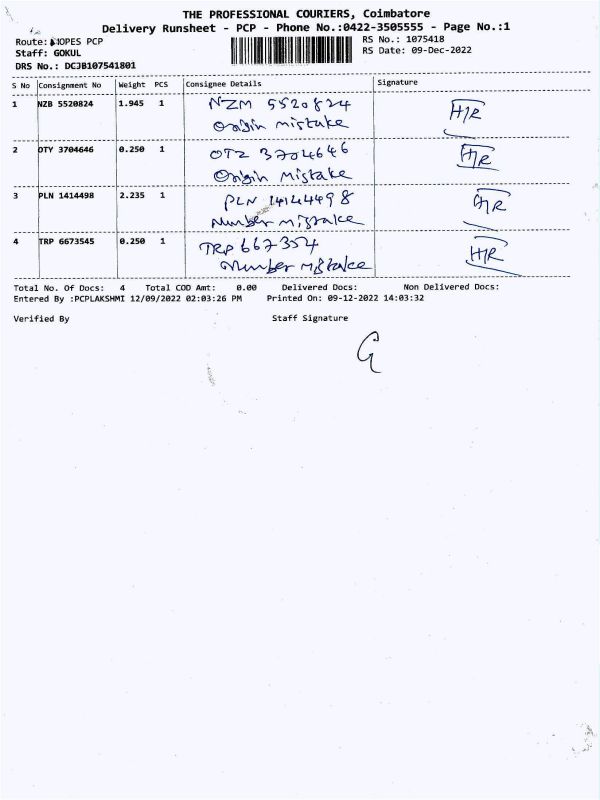 THE PROFESSIONAL COURIERS, Coimbatore
Delivery Runsheet - PCP - Phone No.:0422-3505555 - Page No.:1
Route: HOPES PCP RS No.: 1075418
Staff: GOKUL RS Date: 09-Dec-2022
DRS No.: DCJB107541801
S No Consignment No Weight PCS Consignee Details Signature
1 NZB 5520824 1.945 1 NZM 5520824 HR
Origin mistake
2 OTY 3704646 0.250 1 OTZ 3704646 HR
Origin Mistake
3 PLN 1414498 2.235 1 PLN 14144498 HR
Number Mistake
4 TRP 6673545 0.250 1 TRP 667354 HR
Number Mistake
Total No. Of Docs: 4 Total COD Amt: 0.00 Delivered Docs: Non Delivered Docs:
Entered By :PCPLAKSHMI 12/09/2022 02:03:26 PM Printed On: 09-12-2022 14:03:32
Verified By Staff Signature
G